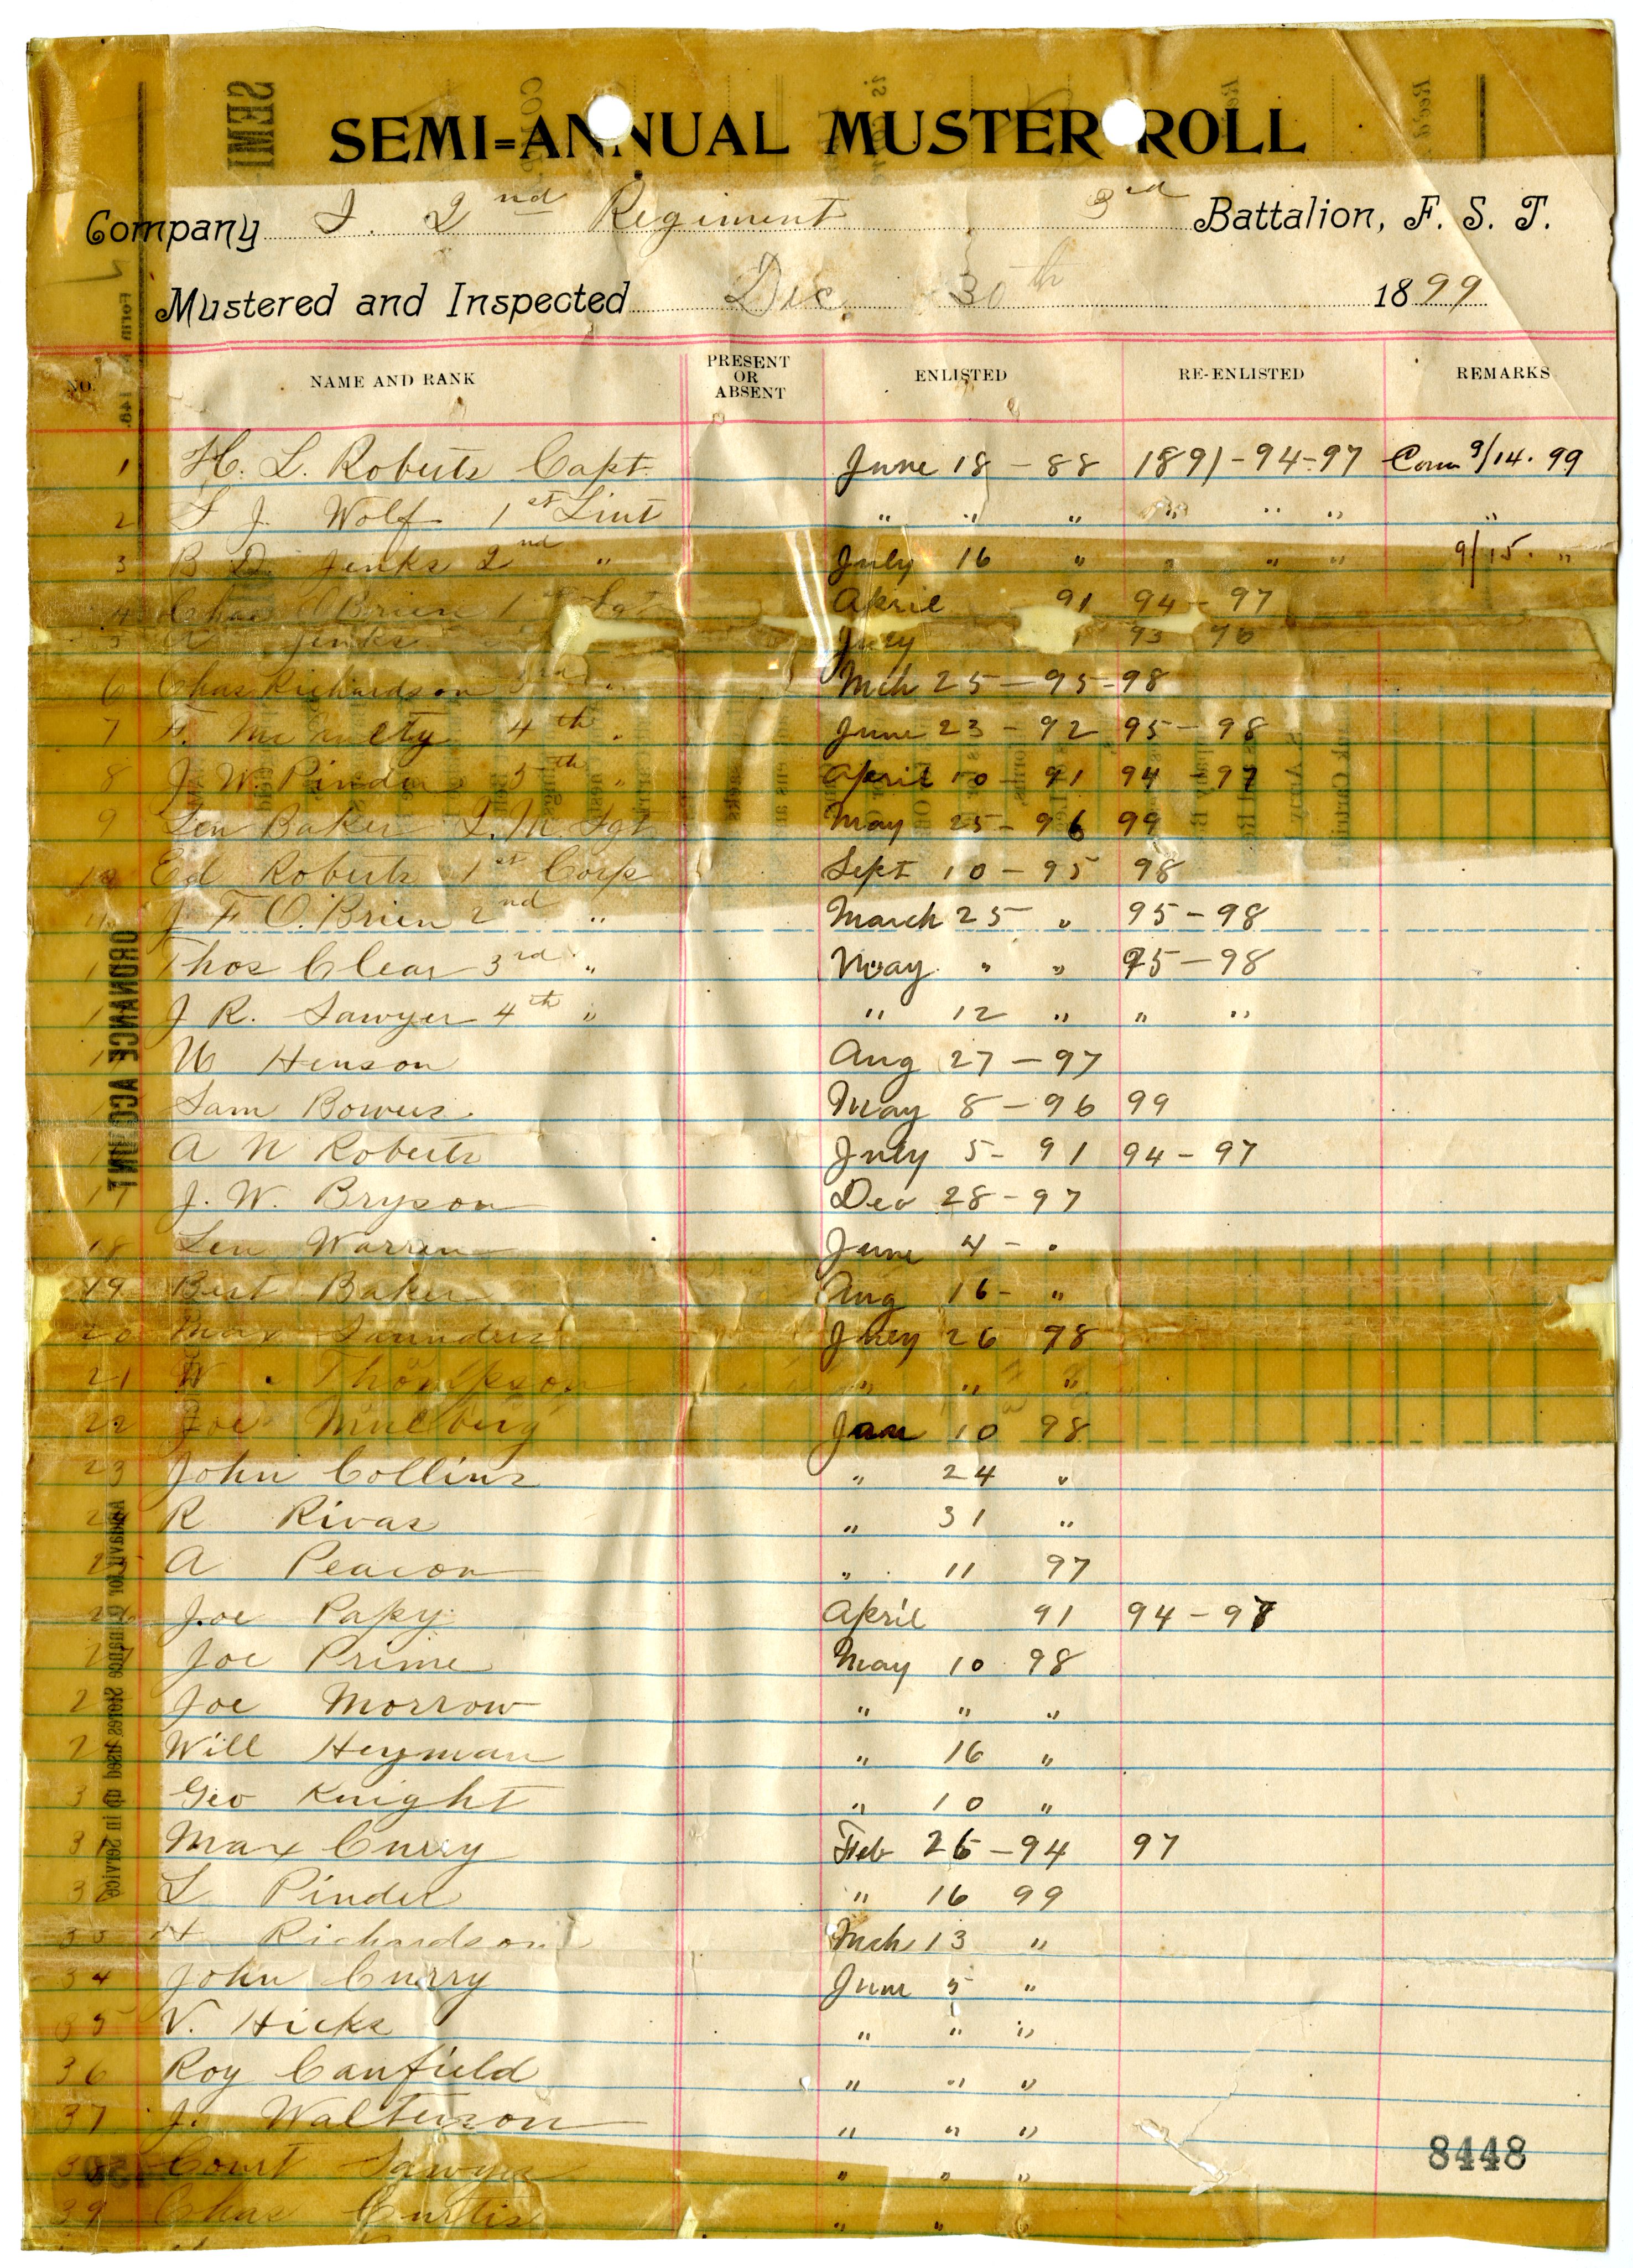 SEMI=ANNUAL MUSTER ROLL
Company I. 2nd Regiment 3rd Battalion, F. S. T.
Mustered and Inspected Dec 30th 1899
NO. NAME AND RANK PRESENT OR ABSENT ENLISTED RE-ENLISTED REMARKS
1 H. L. Roberts Capt. June 18 - 88 1891-94-97 Com 9/14. 99
2 J. Wolf 1st Lint " " " " " " "
3 B D. Jenks 2nd " July 16 " " " " 9/15. "
4 Chas O'Brien 1st Sgt April 91 94 - 97
5 Jenks July 93 96
6 Chas Richardson 3rd " Mch 25 - 95 - 98
7 4th " June 23 - 92 95 - 98
8 J. W. Pinder 5th " April 10 - 91 94 97
9 Len Baker Q. M. Sgt May 25 - 96 99
10 Ed Roberts 1st Corp Sept 10 - 95 98
11 J F O.Brien 2nd " March 25 " 95 - 98
1 Thos Clear 3rd " May " " 95 - 98
1 J R. Sawyer 4th " " 12 " " "
1 W Henson Aug 27 - 97
Sam Bowers. May 8 - 96 99
1 A N Roberts July 5 - 91 94 - 97
17 J. W. Bryson Dec 28 - 97
18 Len Warren June 4 - "
19 Bert Baker Aug 16 - "
20 Max Saunders July 26 98
21 W. Thompson " " "
22 Joe Mulberg Jan 10 98
23 John Collins " 24 "
24 R Rivas " 31 "
25 A Peacon " 11 97
26 Joe Papy April 91 94 - 97
27 Joe Prime May 10 98
2 Joe Morrow " " "
2 Will Heyman " 16 "
3 Geo Knight " 10 "
31 Max Curry Feb 26 - 94 97
32 L Pinder " 16 99
33 H Richardson Mch 13 "
34 John Curry June 5 "
35 V. Hicks " " "
36 Roy Canfield " " "
37 J. Walterson " " "
38 Court Sawyer " " "
8448
39 Chas Curtis " "